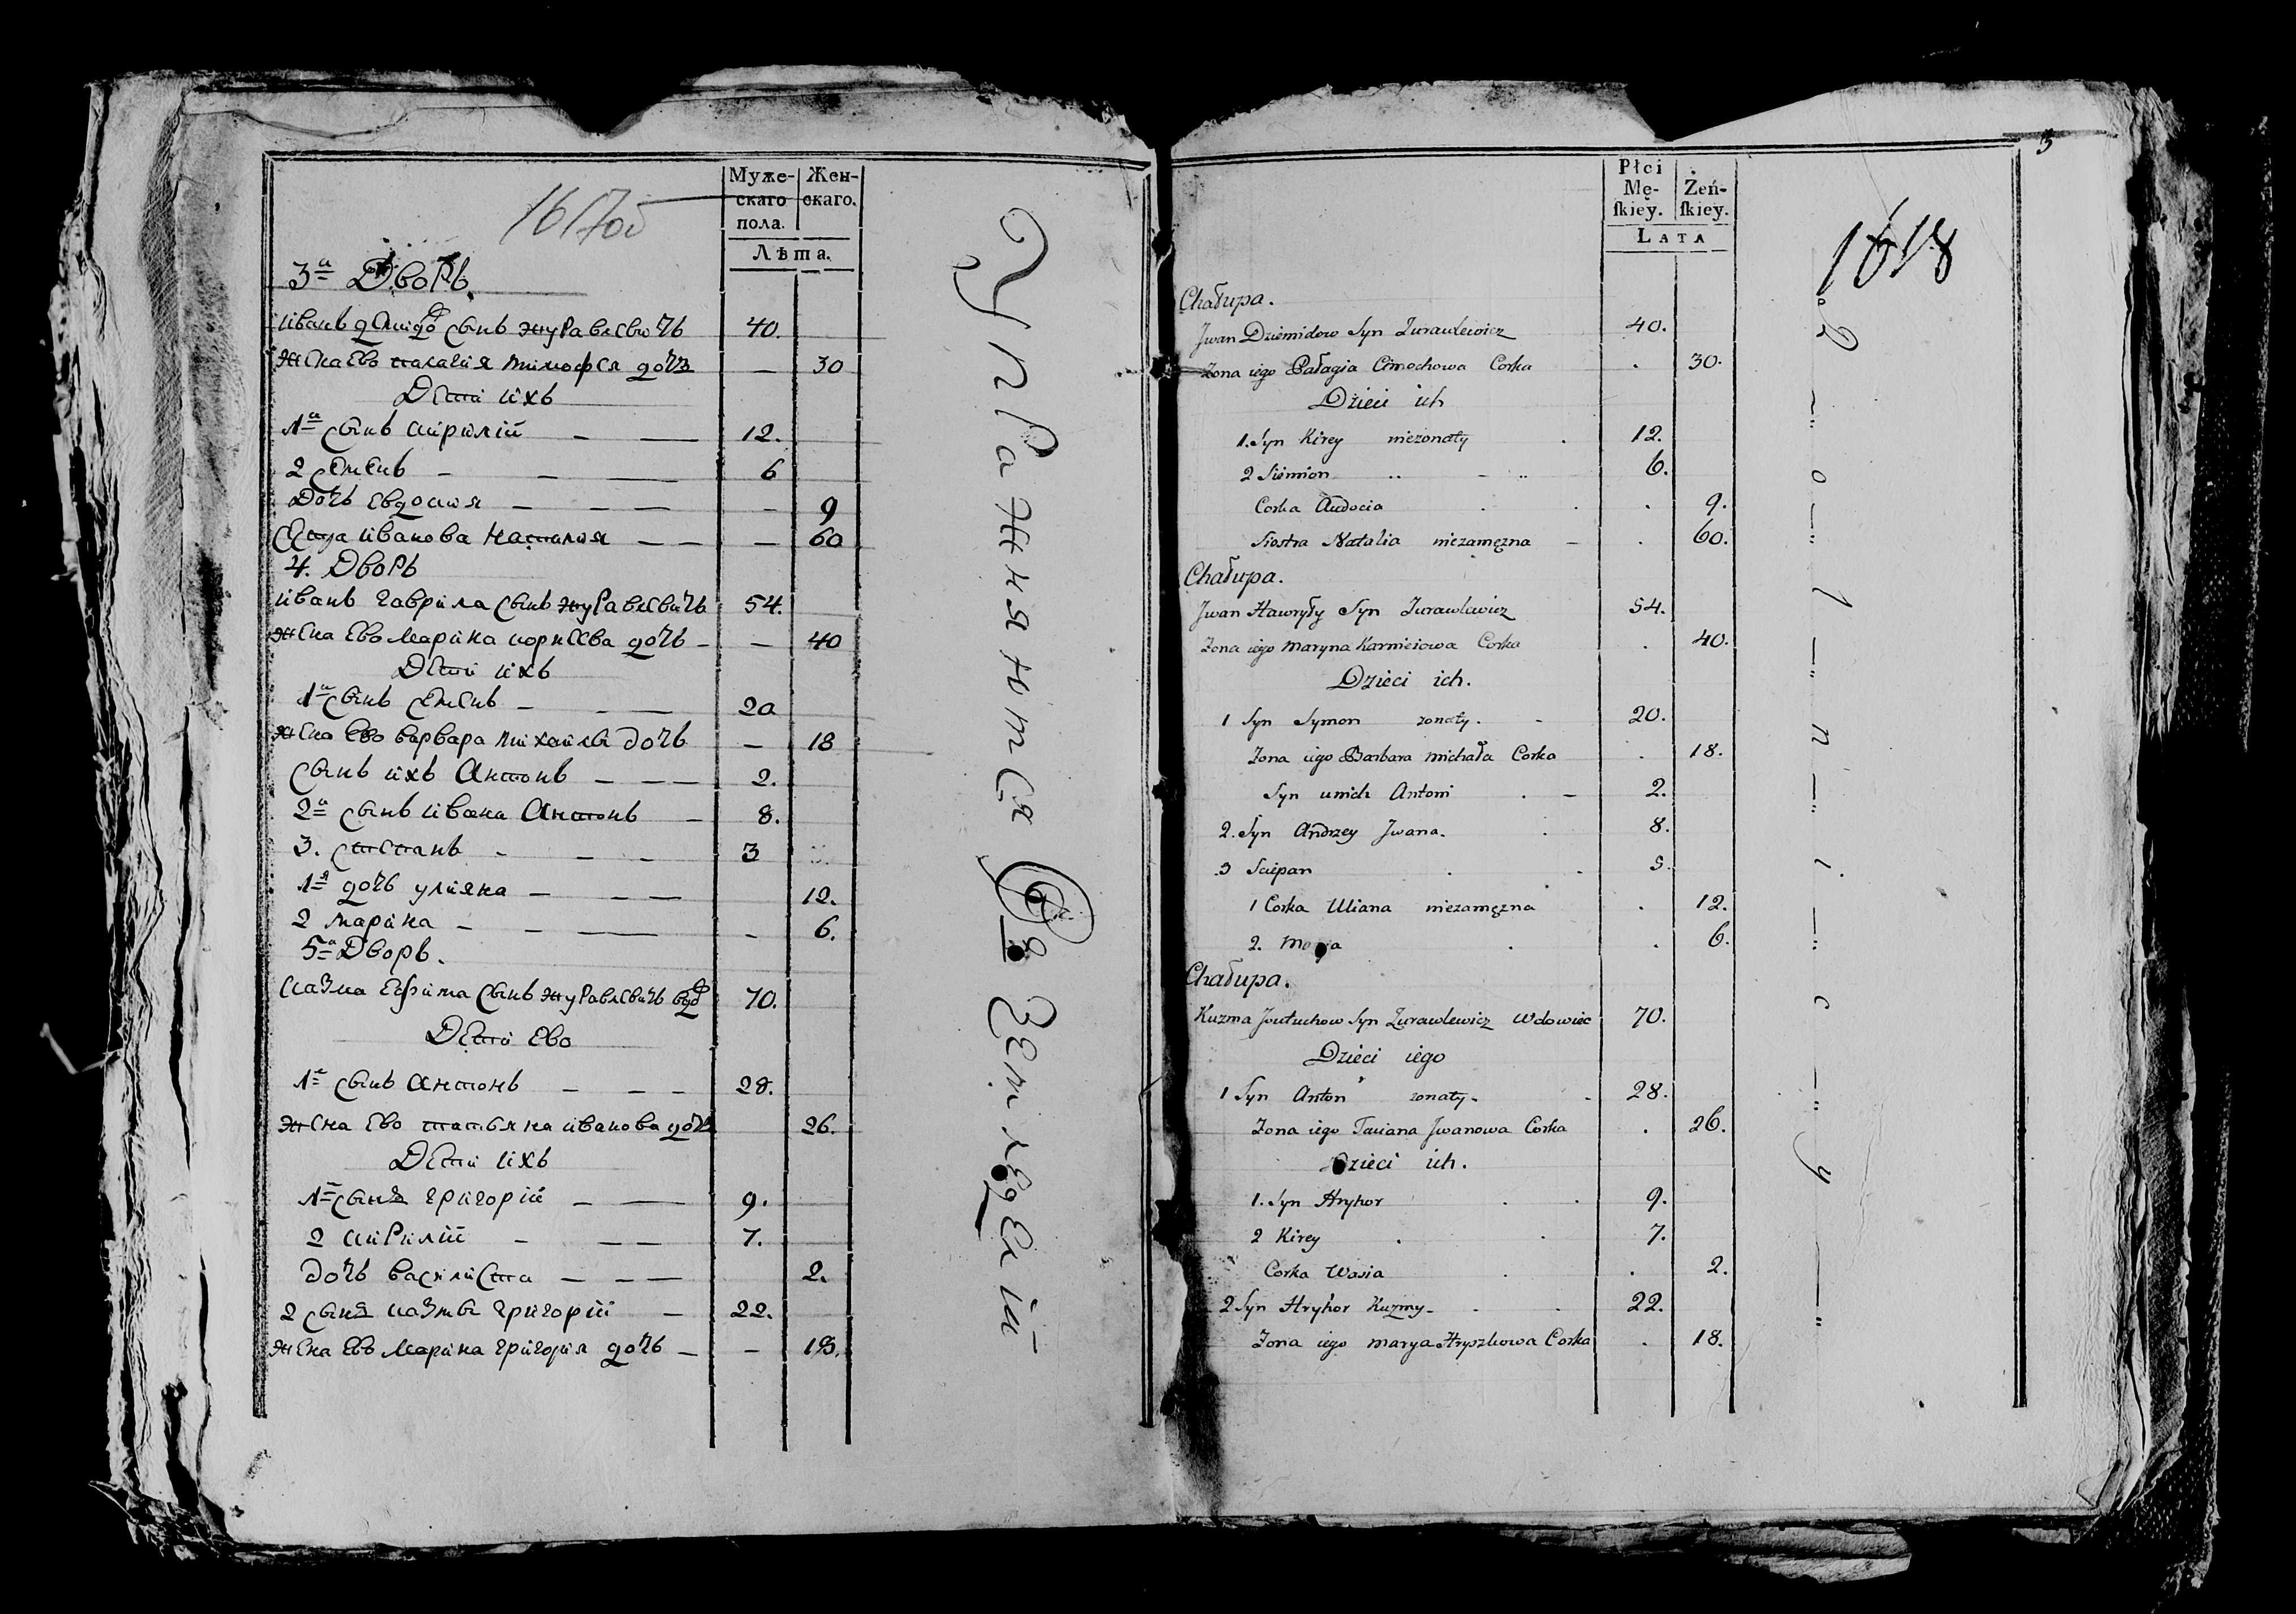 Муже-
скаго
пола.
Жен-
скаго.
Лѣта.
3я Дворъ.
Иванъ демидо сынъ журавлевичъ 40.
жена ево палагия тимофея дочъ — 30
Дети ихъ
1й сынъ кирилiй — — 12.
2 семенъ — — — 6
Дочъ евдокия — — — — 9
Сестра иванова наталия — — — 60
4. Дворъ
иванъ гаврила сынъ журавлевичъ 54.
жена ево марiна корнеева дочъ — — 40
Дети ихъ
1й сынъ семенъ — — — 20
жена ево варвара михайла дочъ — 18
сынъ ихъ Антонъ — — — 2.
2й сынъ ивана Антонъ — 8.
3. степанъ — — — 3
1я дочъ улияна — — — 12.
2 марiна — — — — 6.
5й Дворъ.
казма ефима сынъ журавлевичъ вдо 70.
Дети ево
1й сынъ антонъ — — — 28.
жена ево татьяна иванова дочъ 26.
Дети ихъ
1й сынъ григорiй — — 9.
2 кирилiй — — — 7.
дочъ василиста — — — 2.
2 сынъ казмы григорiй — 22.
жена ево марина григория дочъ — — 18.
Упражняются в земледелiи
3
1618
Płci
Mę-
ſkiey.
Żeń-
ſkiey.
LATA
Chałupa.
Jwan Dziemidow Syn Zurawlewicz 40.
Zona iego Pałagia Cimochowa Corka . 30.
Dzieci ich
1. Syn Kirey niezonaty . 12.
2 Siemion .. - .. 6.
Corka Audocia . . . 9.
Siostra Natalia niezamęzna - . 60.
Chałupa.
Jwan Hawryły Syn Zurawlewicz 54.
Zona iego Maryna Karnieiowa Corka . 40.
Dzieci ich.
1 Syn Symon zonaty. - 20.
Zona iego Barbara michała Corka . 18.
Syn unich Antoni . - 2.
2. Syn Andrzey Jwana. . 8.
3 Sciepan . . 3.
1 Corka Uliana niezamęzna . 12.
2. . . 6.
Chałupa.
Kuzma Syn Zurawlewicz Wdowiec 70.
Dzieci iego
1 Syn Anton zonaty. . 28.
Zona iego Taciana Jwanowa Corka . 26.
Dzieci ich.
1. Syn Hryhor . . 9.
2 Kirey . . 7.
Corka Wasia . . 2.
2 Syn Hryhor Kuzmy. . . 22.
Zona iego marya Hryszkowa Corka . 18.